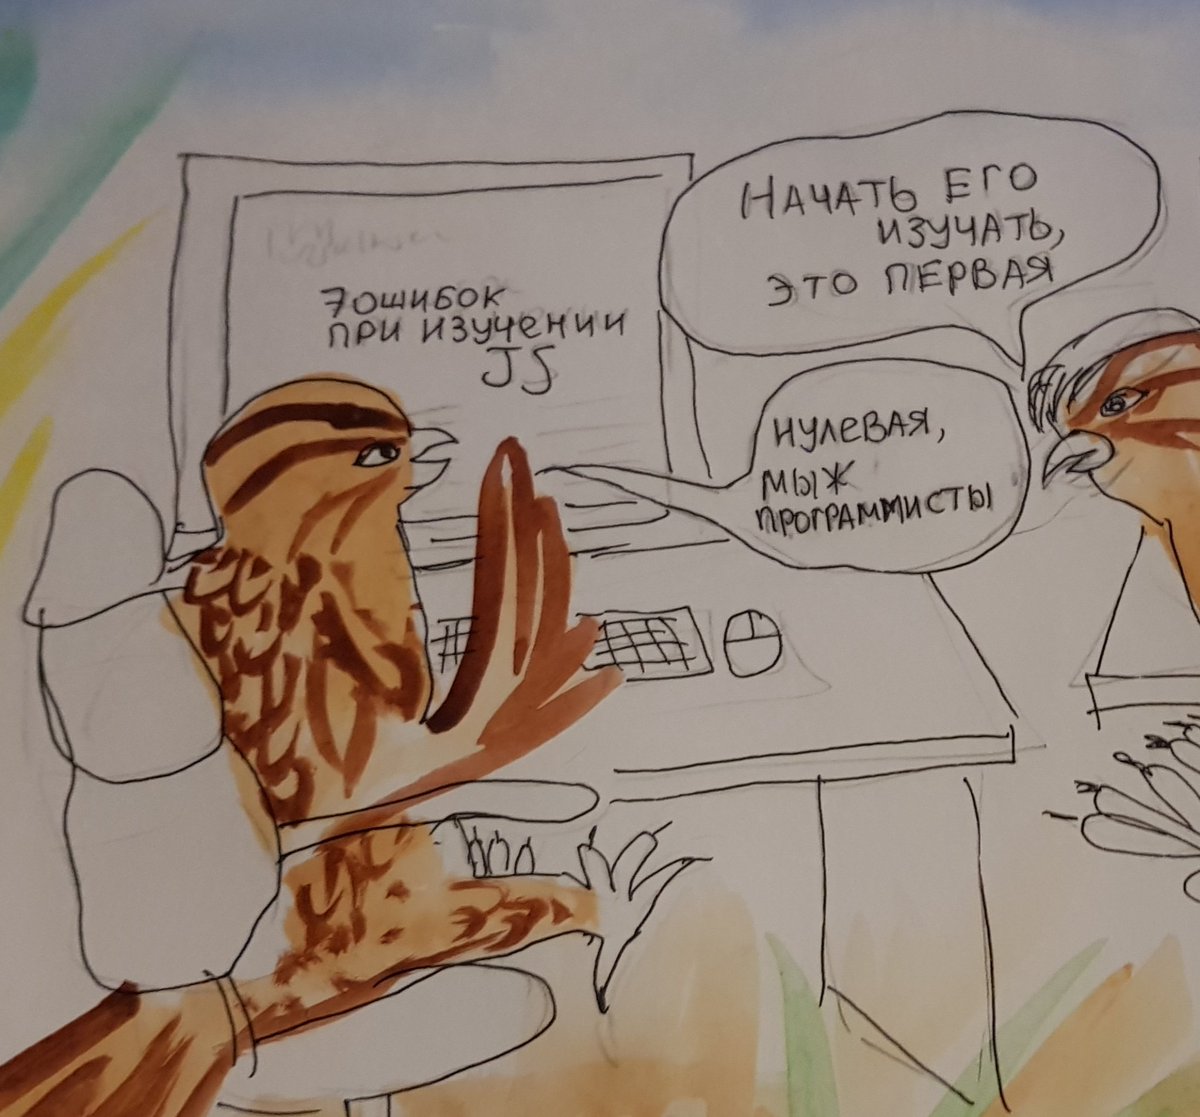 7ОШИБОК
ПРИ ИЗУЧЕНИИ
JS
НАЧАТЬ ЕГО
ИЗУЧАТЬ,
ЭТО ПЕРВАЯ
НУЛЕВАЯ,
МЫЖ
ПРОГРАММИСТЫ